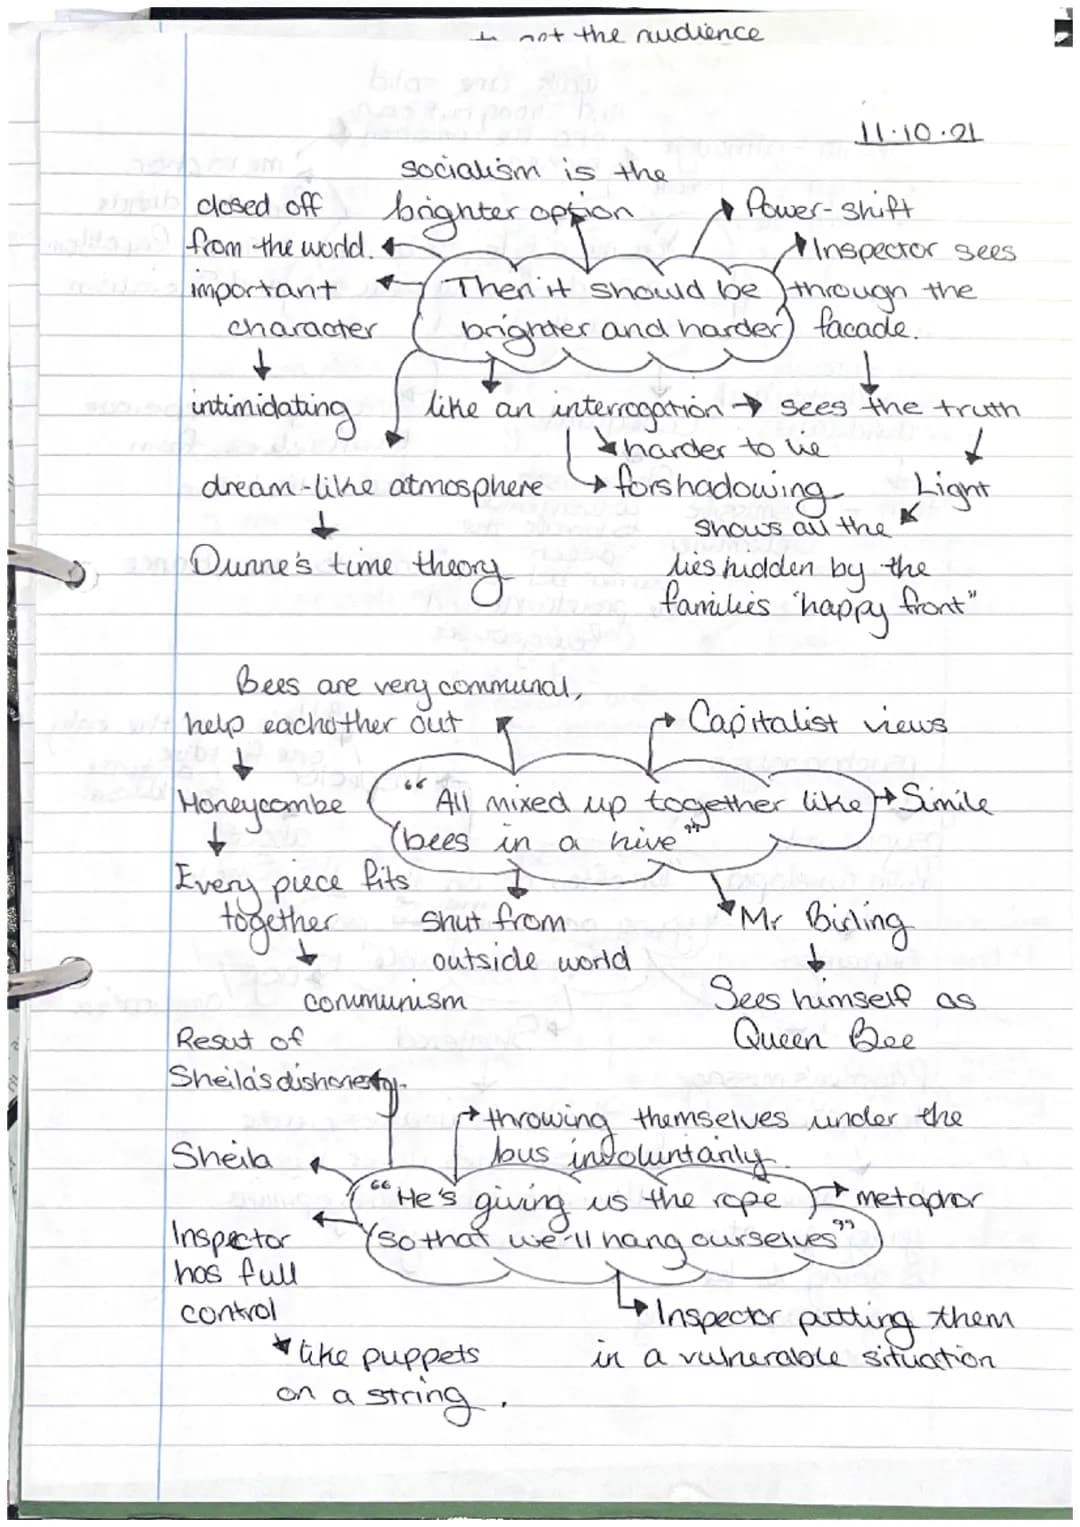 to get the audience
11.10.21
socialism is the
brighter option
closed off
from the world.
important
character
intimidating
Power-shift
Inspector sees
through the
facade.
Then it should be
brighter and harder
like an interrogation → sees the truth
harder to lie
forshadowing
Light
shows all the
lies hidden by the
families "happy front"
dream-like atmosphere
Dunne's time theory
Bees are very communal,
help eachother out
Honeycombe
Every piece fits
together
communism
Capitalist views
"All mixed up together like
bees in a hive"
Simile
Shut from
outside world
Mr Birling
Sees himself as
Queen Bee
Resut of
Sheila's dishonesty.
throwing themselves under the
bus involuntarily.
Sheila
"He's giving us the rope
so that we'll hang ourselves"
metaphor
Inspector
has full
control
like puppets
on a string.
Inspector putting them
in a vulnerable situation